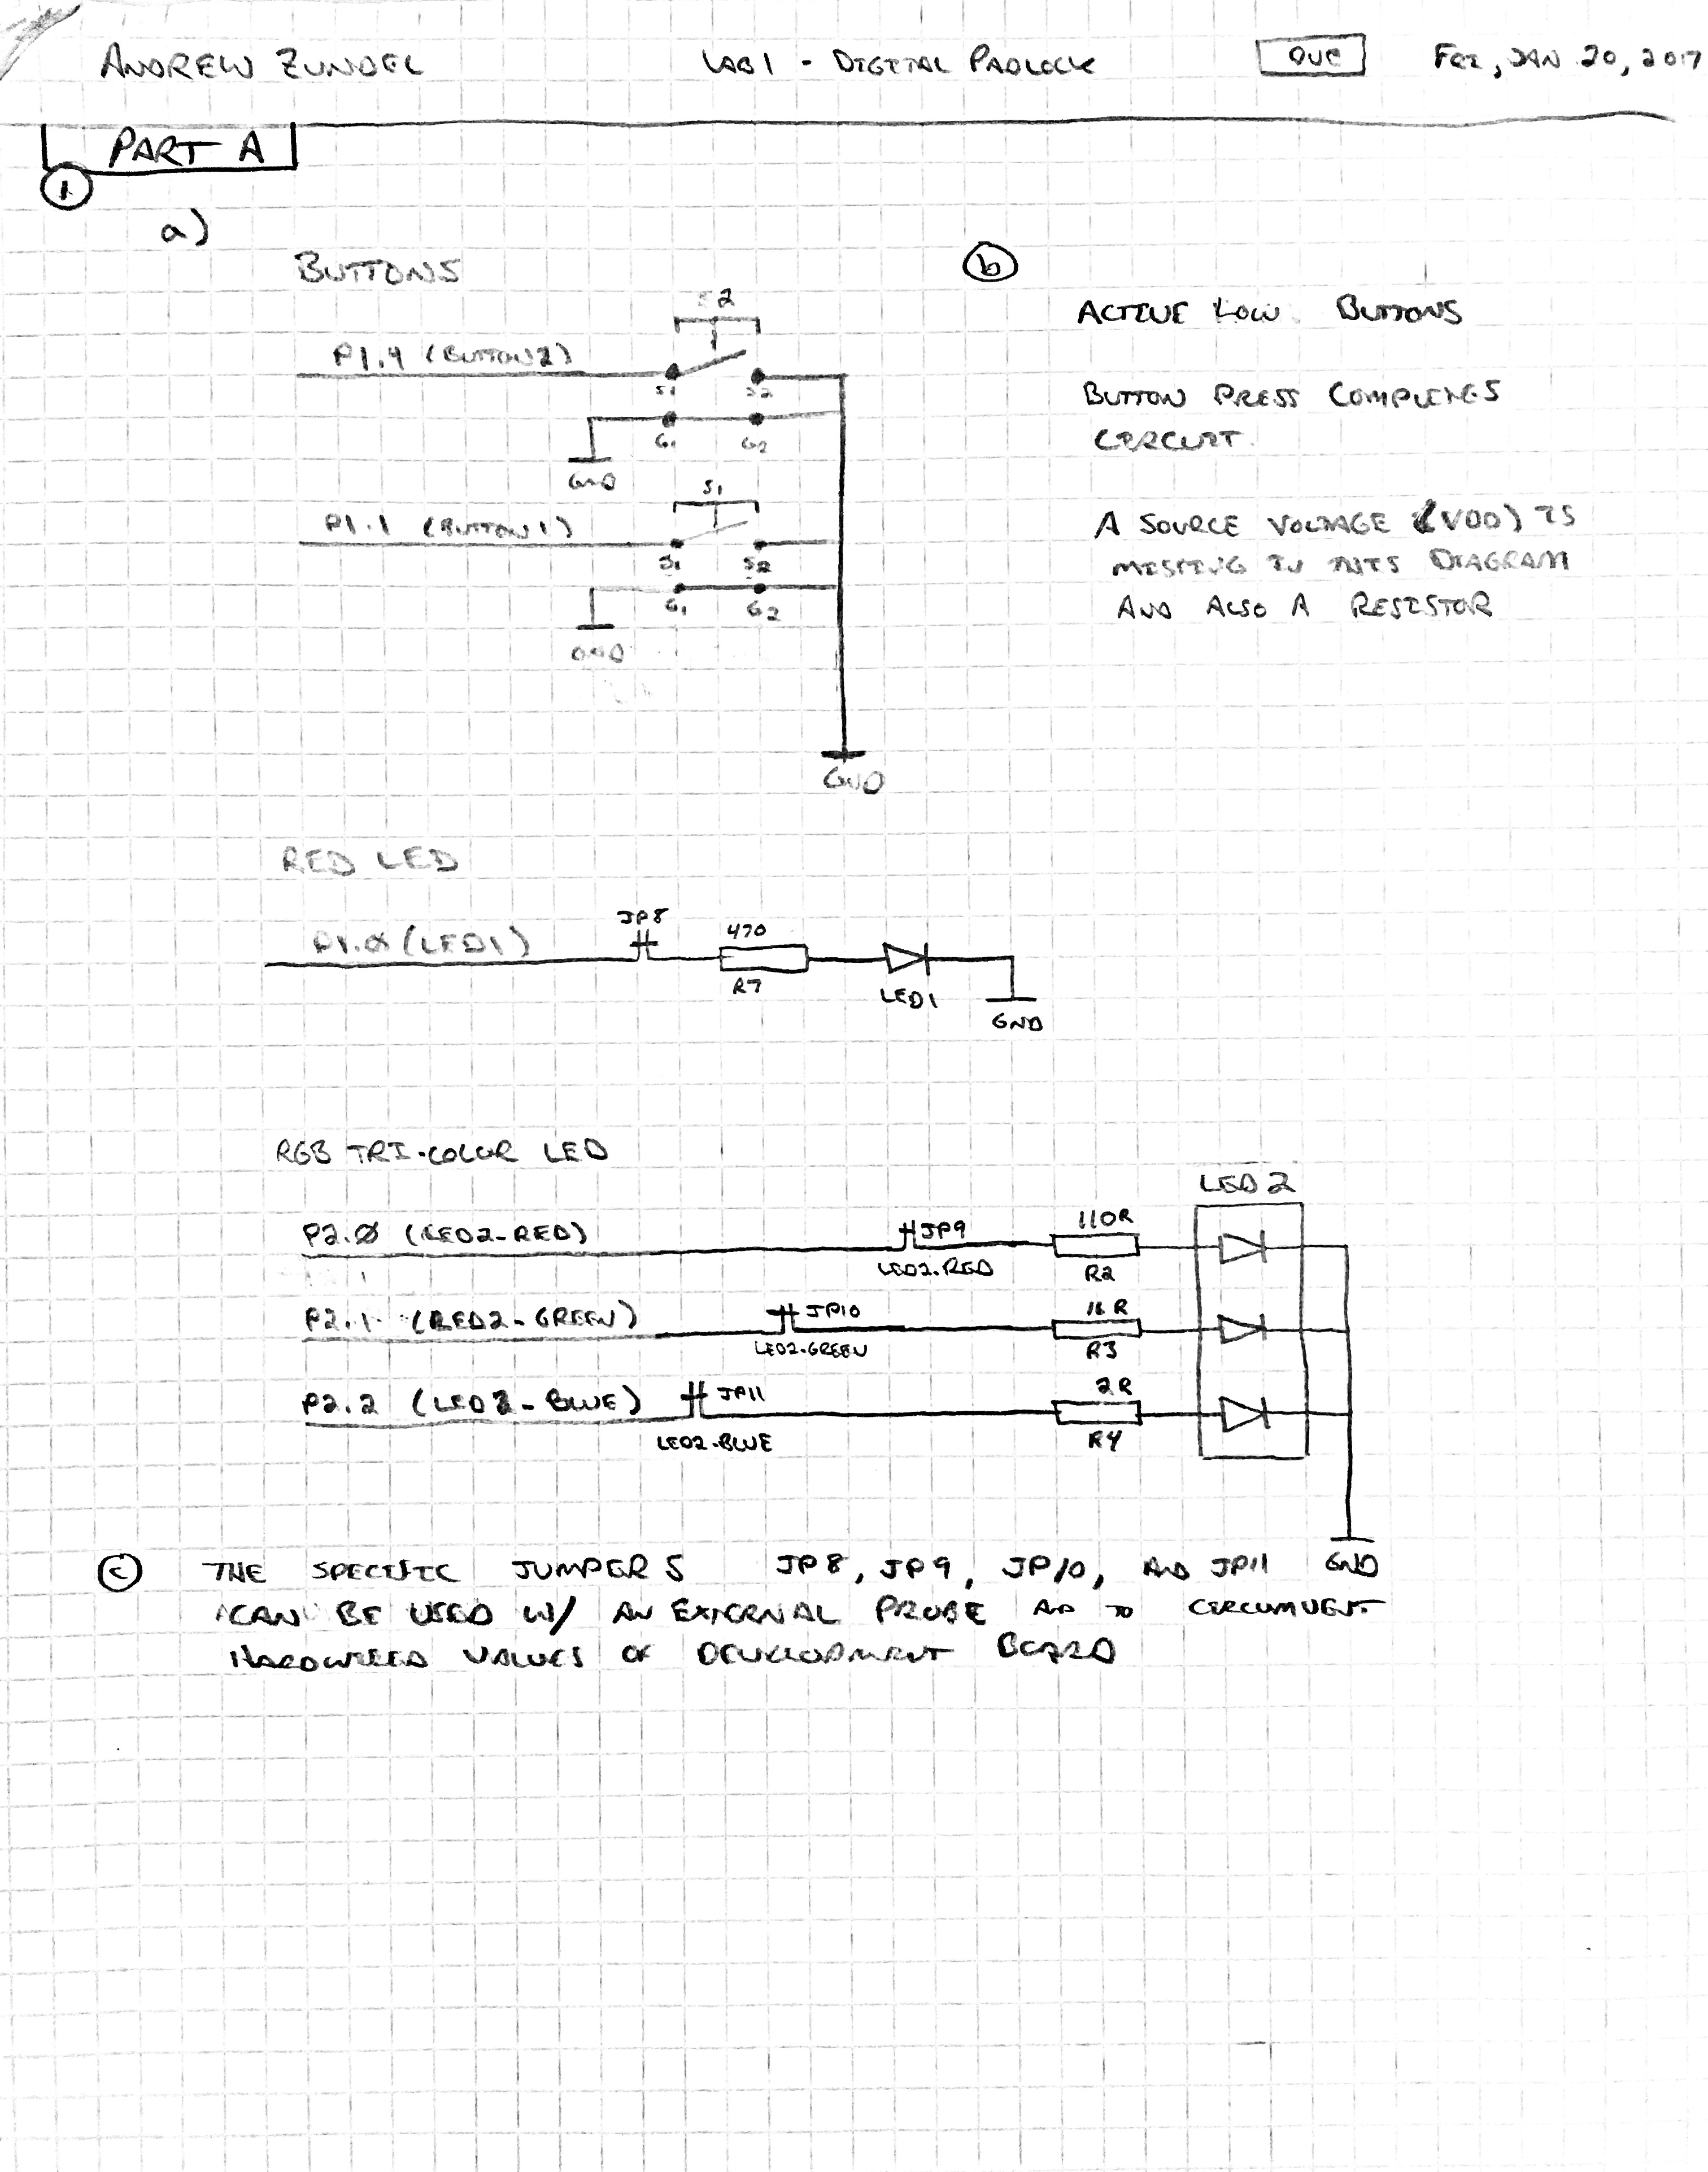 ANDREW ZUNDEL LAB 1 - DIGITAL PADLOCK DUE FRI, JAN 20, 2017
PART A
1
a)
BUTTONS
S2
P1.4 (BUTTON2)
S1 S2
G1 G2
GND
S1
P1.1 (BUTTON1)
S1 S2
G1 G2
GND
GND
b
ACTIVE LOW BUTTONS
BUTTON PRESS COMPLETES
CIRCUIT.
A SOURCE VOLTAGE (VDD) IS
MISSING IN THIS DIAGRAM
AND ALSO A RESISTOR
RED LED
P1.0 (LED1)
JP8
470
R7
LED1
GND
RGB TRI-COLOR LED
LED2
P2.0 (LED2-RED)
JP9
LED2-RED
110R
R2
P2.1 (LED2-GREEN)
JP10
LED2-GREEN
R3
P2.2 (LED2-BLUE)
JP11
LED2-BLUE
2R
R4
GND
c THE SPECIFIC JUMPERS JP8, JP9, JP10, AND JP11
CAN BE USED W/ AN EXTERNAL PROBE AND TO CIRCUMVENT
HARDWIRED VALUES OF DEVELOPMENT BOARD